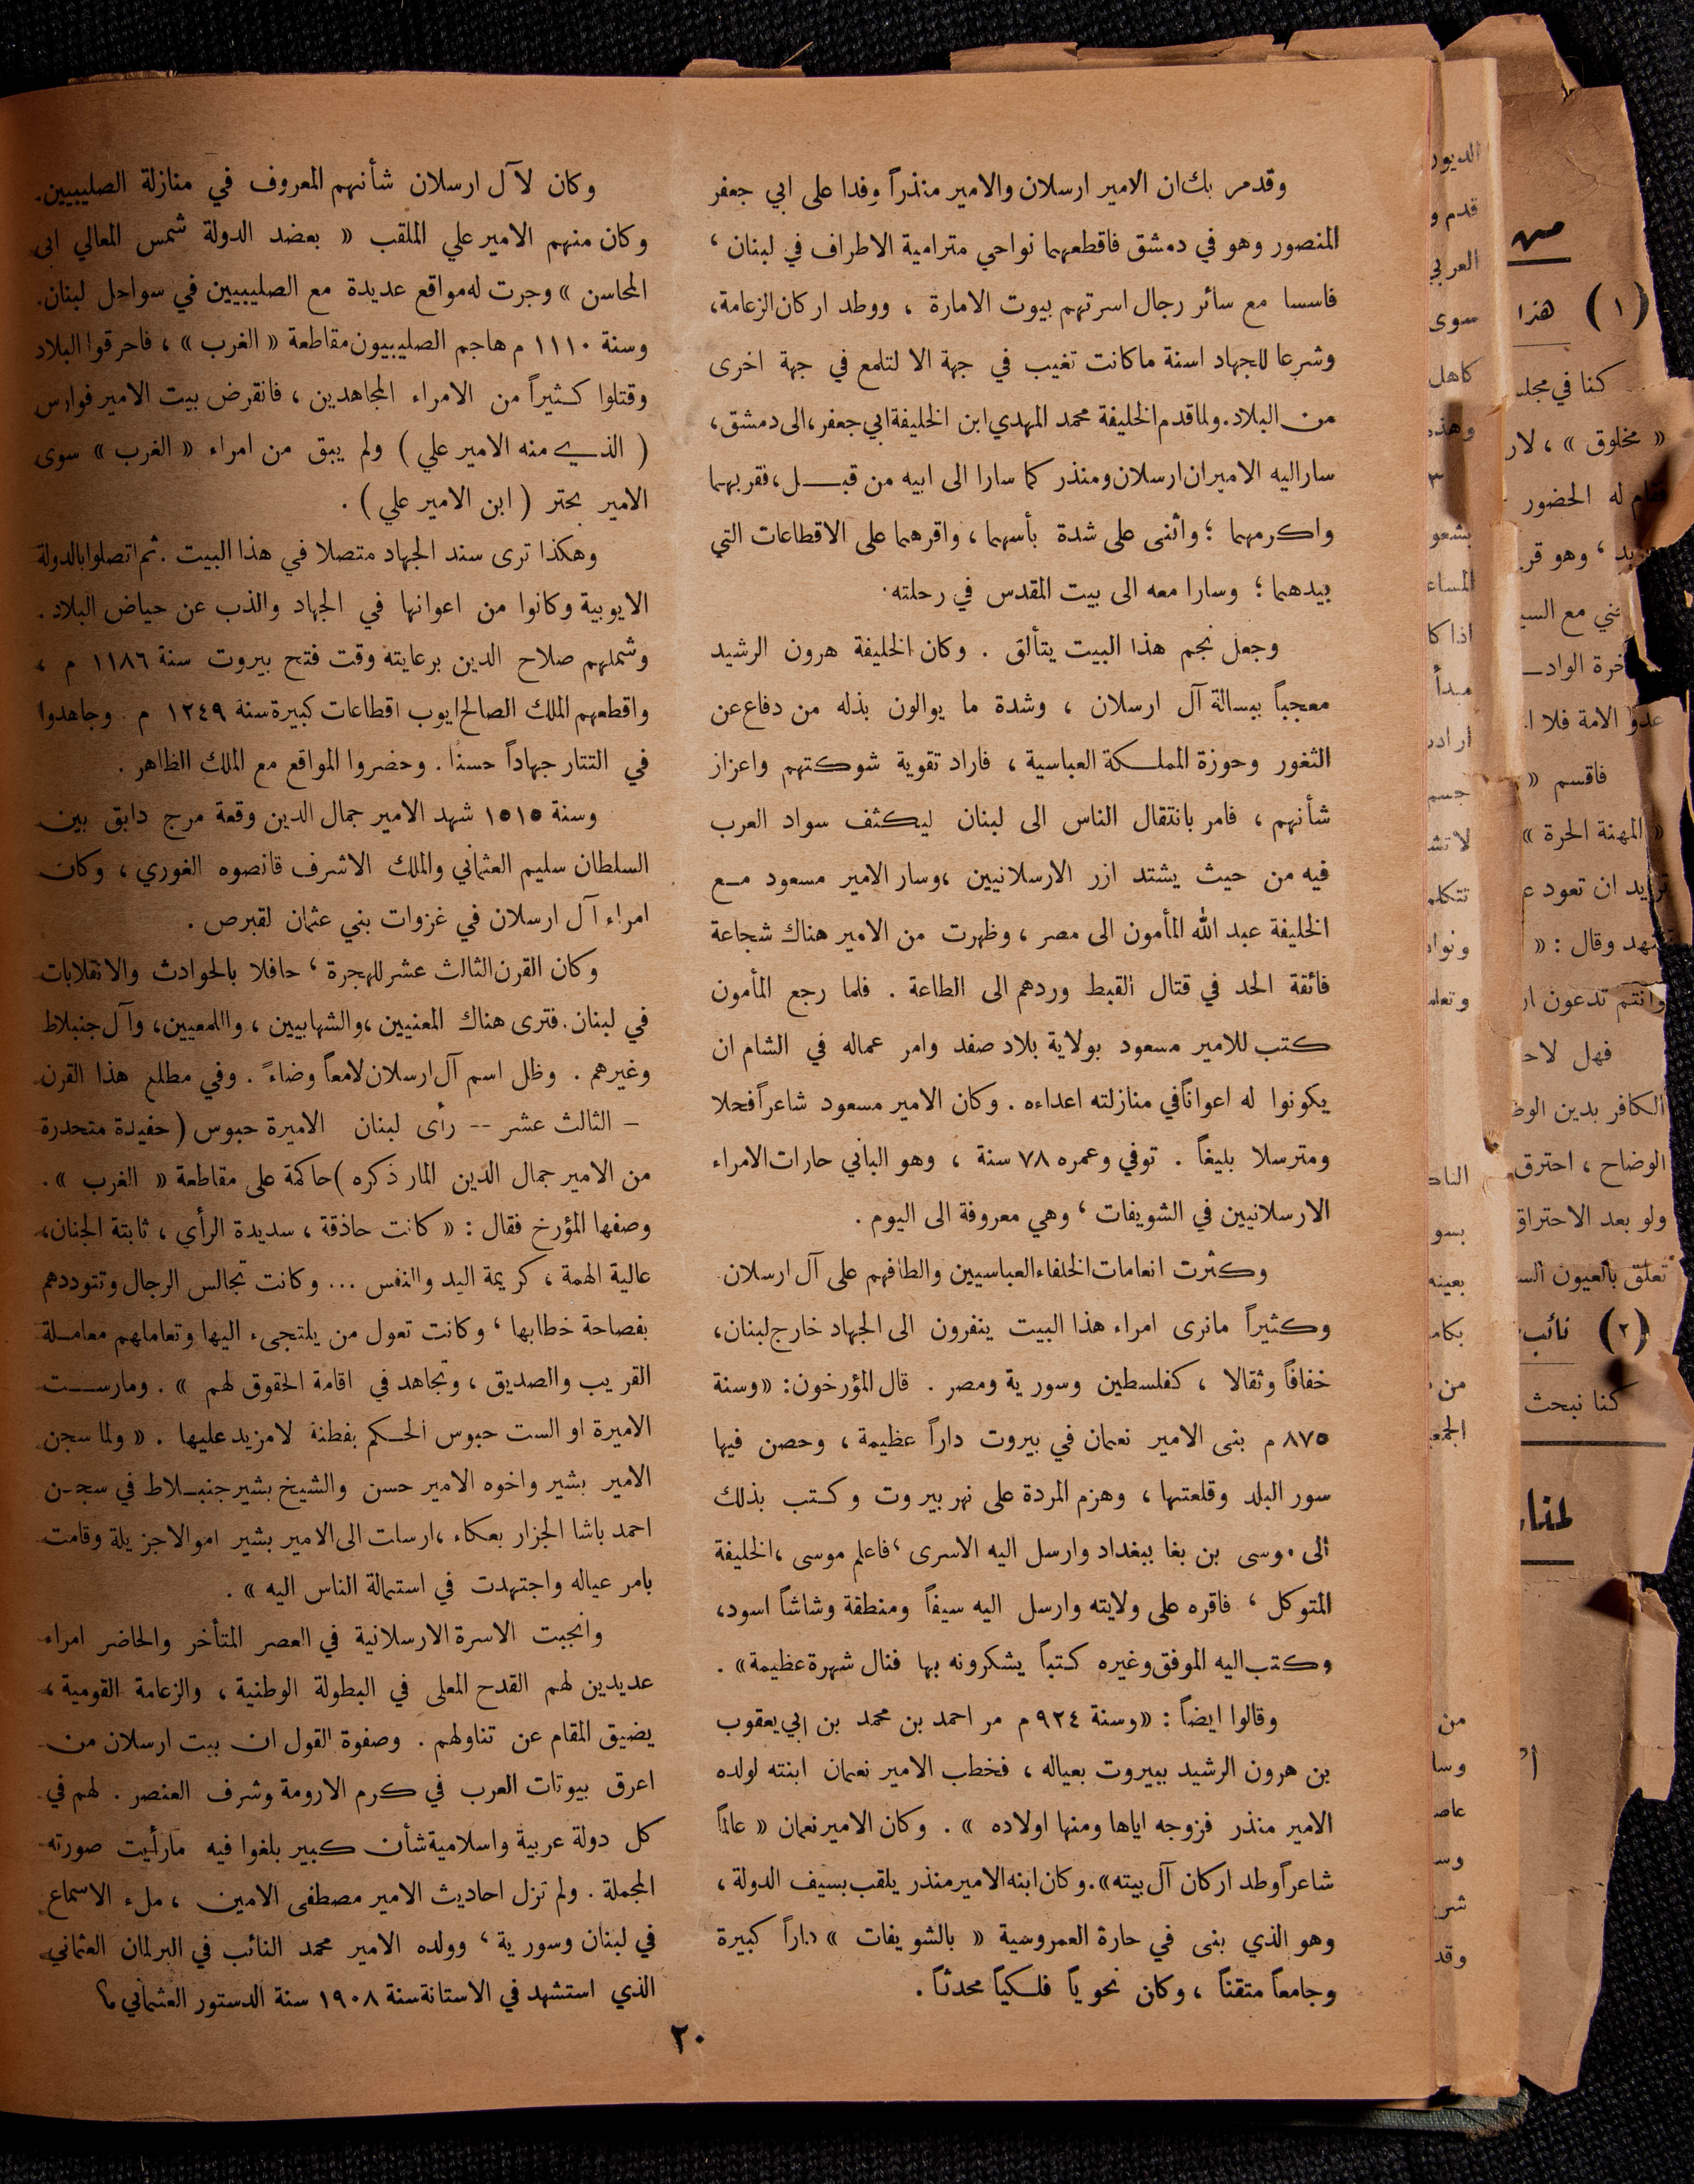 وقد مر بك ان الامير ارسلان والامير منذراً وفدا على ابي جعفر
المنصور وهو في دمشق فاقطعهما نواحي مترامية الاطراف في لبنان ،
فاسسا مع سائر رجال اسرتهم بيوت الامارة ، ووطد اركان الزعامة ،
وشرعا للجهاد اسنة ما كانت تغيب في جهة الا لتلمع في جهة اخرى
من البلاد . ولما قدم الخليفة محمد المهدي ابن الخليفة ابي جعفر ، الى دمشق ،
سار اليه الاميران ارسلان ومنذر كما سارا الى ابيه من قبل ، فقربهما
واكرمهما ؛ واثنى على شدة بأسهما ، واقرهما على الاقطاعات التي
بيدهما ؛ وسارا معه الى بيت المقدس في رحلته .
وجعل نجم هذا البيت يتألق . وكان الخليفة هرون الرشيد
معجباً ببسالة آل ارسلان ، وشدة ما يوالون بذله من دفاع عن
الثغور وحوزة المملكة العباسية ، فاراد تقوية شوكتهم واعزاز
شأنهم ، فامر بانتقال الناس الى لبنان ليكثف سواد العرب
فيه من حيث يشتد ازر الارسلانيين ، وسار الامير مسعود مع
الخليفة عبد الله المأمون الى مصر ، وظهرت من الامير هناك شجاعة
فائقة الحد في قتال القبط وردهم الى الطاعة . فلما رجع المأمون
كتب للامير مسعود بولاية بلاد صفد وامر عماله في الشام ان
يكونوا له اعواناً في منازلته اعداءه . وكان الامير مسعود شاعراً فحلا
ومترسلا بليغاً . توفي وعمره ٧٨ سنة ، وهو الباني حارات الامراء
الارسلانيين في الشويفات ، وهي معروفة الى اليوم .
وكثرت انعامات الخلفاء العباسيين والطافهم على آل ارسلان
وكثيراً ما نرى امراء هذا البيت ينفرون الى الجهاد خارج لبنان ،
خفافاً وثقالا ، كفلسطين وسورية ومصر . قال المؤرخون : « وسنة
٨٧٥ م بنى الامير نعمان في بيروت داراً عظيمة ، وحصن فيها
سور البلد وقلعتها ، وهزم المردة على نهر بيروت وكتب بذلك
الى موسى بن بغا ببغداد وارسل اليه الاسرى ، فاعلم موسى ، الخليفة
المتوكل ، فاقره على ولايته وارسل اليه سيفاً ومنطقة وشاشاً اسود ،
وكتب اليه الموفق وغيره كتباً يشكرونه بها فنال شهرة عظيمة » .
وقالوا ايضاً : « وسنة ٩٢٤ م مر احمد بن محمد بن ابي يعقوب
بن هرون الرشيد ببيروت بعياله ، فخطب الامير نعمان ابنته لولده
الامير منذر فزوجه اياها ومنها اولاده » . وكان الامير نعمان « عالماً
شاعراً وطد اركان آل بيته » . وكان ابنه الامير منذر يلقب بسيف الدولة ،
وهو الذي بنى في حارة العمروسية « بالشويفات » داراً كبيرة
وجامعاً متقناً ، وكان نحوياً فلكياً محدثاً .
وكان لآل ارسلان شأنهم المعروف في منازلة الصليبيين .
وكان منهم الامير علي الملقب « بعضد الدولة شمس المعالي ابي
المحاسن » وجرت له مواقع عديدة مع الصليبيين في سواحل لبنان .
وسنة ١١١٠ م هاجم الصليبيون مقاطعة « الغرب » ، فاحرقوا البلاد
وقتلوا كثيراً من الامراء المجاهدين ، فانقرض بيت الامير فوارس
( الذي منه الامير علي ) ولم يبق من امراء « الغرب » سوى
الامير بحتر ( ابن الامير علي ) .
وهكذا ترى سند الجهاد متصلا في هذا البيت . ثم اتصلوا بالدولة
الايوبية وكانوا من اعوانها في الجهاد والذب عن حياض البلاد .
وشملهم صلاح الدين برعايته وقت فتح بيروت سنة ١١٨٦ م ،
واقطعهم الملك الصالح ايوب اقطاعات كبيرة سنة ١٢٤٩ م . وجاهدوا
في التتار جهاداً حسنا . وحضروا المواقع مع الملك الظاهر .
وسنة ١٥١٥ شهد الامير جمال الدين وقعة مرج دابق بين
السلطان سليم العثماني والملك الاشرف قانصوه الغوري ، وكان
امراء آل ارسلان في غزوات بني عثمان لقبرص .
وكان القرن الثالث عشر للهجرة ، حافلا بالحوادث والانقلابات
في لبنان . فترى هناك المعنيين ، والشهابيين ، واللمعيين ، وآل جنبلاط
وغيرهم . وظل اسم آل ارسلان لامعاً وضاءً . وفي مطلع هذا القرن
– الثالث عشر -- رأى لبنان الاميرة حبوس ( حفيدة متحدرة
من الامير جمال الدين المار ذكره ) حاكمة على مقاطعة « الغرب » .
وصفها المؤرخ فقال : « كانت حاذقة ، سديدة الرأي ، ثابتة الجنان ،
عالية الهمة ، كريمة اليد والنفس ... وكانت تجالس الرجال وتتوددهم
بفصاحة خطابها ، وكانت تعول من يلتجىء اليها وتعاملهم معاملة
القريب والصديق ، وتجاهد في اقامة الحقوق لهم » . ومارست
الاميرة او الست حبوس الحكم بفطنة لا مزيد عليها . « ولما سجن
الامير بشير واخوه الامير حسن والشيخ بشير جنبلاط في سجن
احمد باشا الجزار بعكاء ، ارسات الى الامير بشير اموالا جزيلة وقامت
بامر عياله واجتهدت في استمالة الناس اليه » .
وانجبت الاسرة الارسلانية في العصر المتأخر والحاضر امراء
عديدين لهم القدح المعلى في البطولة الوطنية ، والزعامة القومية ،
يضيق المقام عن تناولهم . وصفوة القول ان بيت ارسلان من
اعرق بيوتات العرب في كرم الارومة وشرف العنصر . لهم في
كل دولة عربية واسلامية شأن كبير بلغوا فيه ما رأيت صورته
المجملة . ولم تزل احاديث الامير مصطفى الامين ، ملء الاسماع
في لبنان وسورية ، وولده الامير محمد النائب في البرلمان العثماني
الذي استشهد في الاستانة سنة ١٩٠٨ سنة الدستور العثماني
٢٠
قدم و
العربي
سوى
كاهل
بشعو
اذا كا
مبدأ
جسم
من
وسا
وقد
(١) هذا
كنا في مجلس
« مخلوق » ، لار
له الحضور
، وهو قر
مع السي
عدوا الامة فلا
فاقسم «
« المهنة الحرة »
تريد ان تعود
وقال : «
وانتم تدعون
فهل
الكافر بدين
الوضاح ، احترق
ولو بعد الاحتراق
تعلق بالعيون
(٢) نائب
كنا نبحث